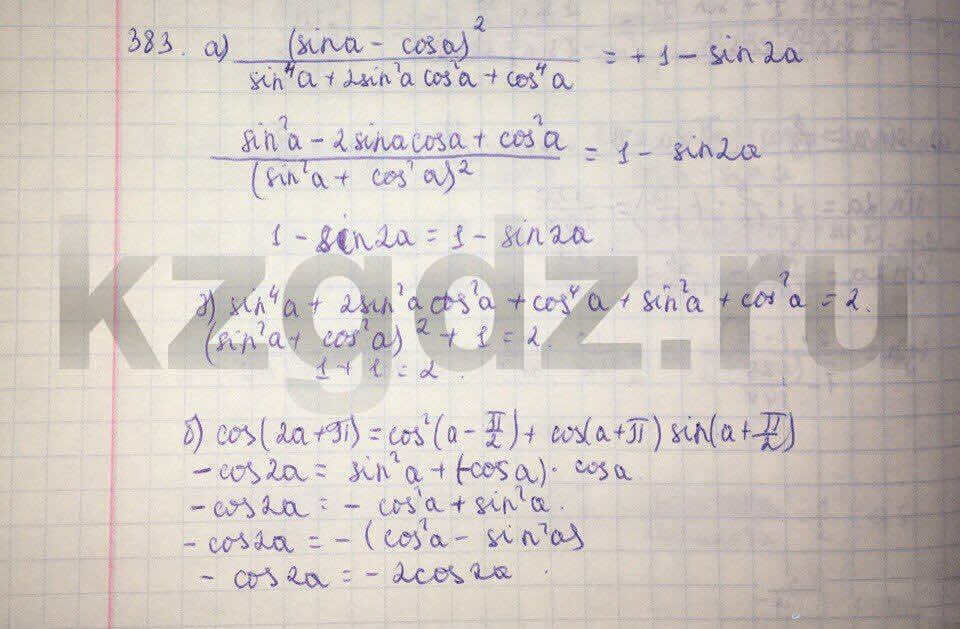 383. а) (sin a - cos a)² / (sin⁴a + 2sin²a cos²a + cos⁴a) = + 1 - sin 2a
(sin²a - 2 sin a cos a + cos²a) / (sin²a + cos²a)² = 1 - sin2a
1 - sin2a = 1 - sin2a
kzgdz.ru
г) sin⁴a + 2sin²a cos²a + cos⁴a + sin²a + cos²a = 2.
(sin²a + cos²a)² + 1 = 2.
1 + 1 = 2.
б) cos(2a+π) = cos²(a - π/2) + cos(a+π) sin(a + π/2)
-cos2a = sin²a + (-cos a) · cos a
-cos2a = - cos²a + sin²a.
-cos2a = - (cos²a - sin²a)
- cos2a = - 2cos2a.